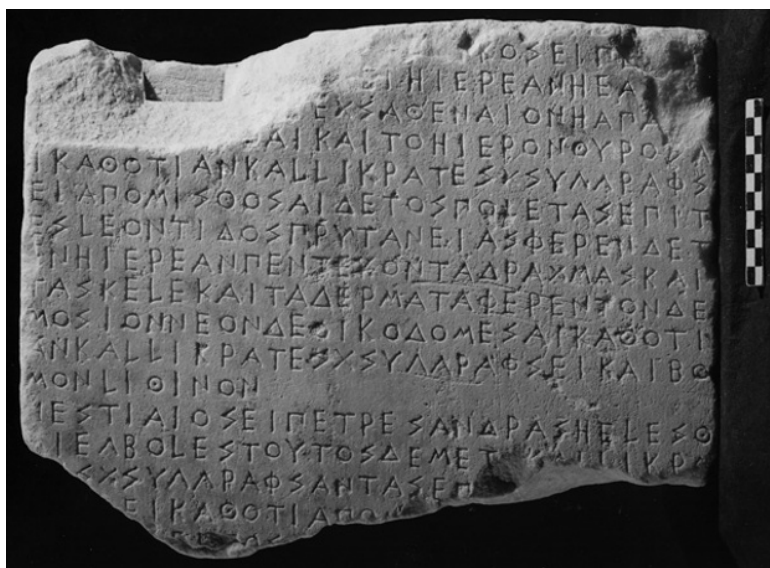 ΚΟΣΕΙΠ
ΕΙΗΙΕΡΕΑΝΗΕΑ
ΕΧΣΑΘΕΝΑΙΟΝΗΑΠΑ
ΘΑΙΚΑΙΤΟΗΙΕΡΟΝΘΥΡΟΣΑ
ΙΚΑΘΟΤΙΑΝΚΑΛΛΙΚΡΑΤΕΣΧΣΥΓΓΡΑΦΣ
ΕΙΑΠΟΜΙΣΘΟΣΑΙΔΕΤΟΣΠΟΛΕΤΑΣΕΠΙΤ
ΕΣΛΕΟΝΤΙΔΟΣΠΡΥΤΑΝΕΙΑΣΦΕΡΕΝΔΕΤ
ΕΝΗΙΕΡΕΑΝΠΕΝΤΕΚΟΝΤΑΔΡΑΧΜΑΣΚΑΙ
ΤΑΣΚΕΛΕΚΑΙΤΑΔΕΡΜΑΤΑΦΕΡΕΝΤΟΝΔΕ
ΜΟΣΙΟΝΝΕΟΝΔΕΟΙΚΟΔΟΜΕΣΑΙΚΑΘΟΤΙ
ΑΝΚΑΛΛΙΚΡΑΤΕΣΧΣΥΓΓΡΑΦΣΕΙΚΑΙΒΟ
ΜΟΝΛΙΘΙΝΟΝ
ΗΕΣΤΙΑΙΟΣΕΙΠΕΤΡΕΣΑΝΔΡΑΣΗΕΛΕΣΘ
ΙΕΓΒΟΛΕΣΤΟΥΤΟΣΔΕΜΕΤ ΚΑΛΛΙΚΡΑ
ΣΧΣΥΓΓΡΑΦΣΑΝΤΑΣΕΠ
ΕΙΚΑΘΟΤΙΑΠΟ